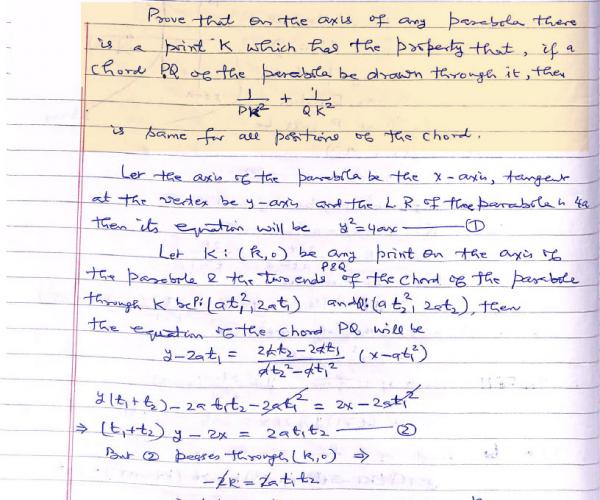 Prove that on the axis of any parabola there
is a point K which has the property that, if a
chord PQ of the parabola be drawn through it, then
1/PK² + 1/QK²
is same for all positions of the chord.
Let the axis of the parabola be the x-axis, tangent
at the vertex be y-axis and the L R of the parabola is 4a
then its equation will be y²=4ax —— ①
Let K: (k,0) be any point on the axis of
the parabola & the two ends P&Q of the chord of the parabola
through K be P:(at₁², 2at₁) and Q:(at₂², 2at₂), then
the equation of the chord PQ will be
y-2at₁ = (2at₂-2at₁)/(at₂²-at₁²) (x-at₁²)
y(t₁+t₂)-2at₁t₂-2at₁² = 2x-2at₁²
⇒ (t₁+t₂)y-2x = 2at₁t₂ —— ②
But ② passes through (k,0) ⇒
-2k = 2at₁t₂